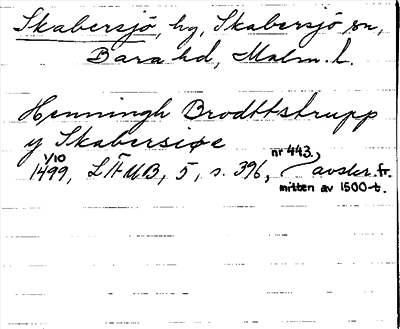 Skabersjö, hg, Skabersjö sn,
Bara hd, Malm. l.
Henningh Brodttstrupp
y Skabersiøe
1/10 1499, LÅUB, 5, s. 396, nr 443, avskr. fr.
mitten av 1500-t.